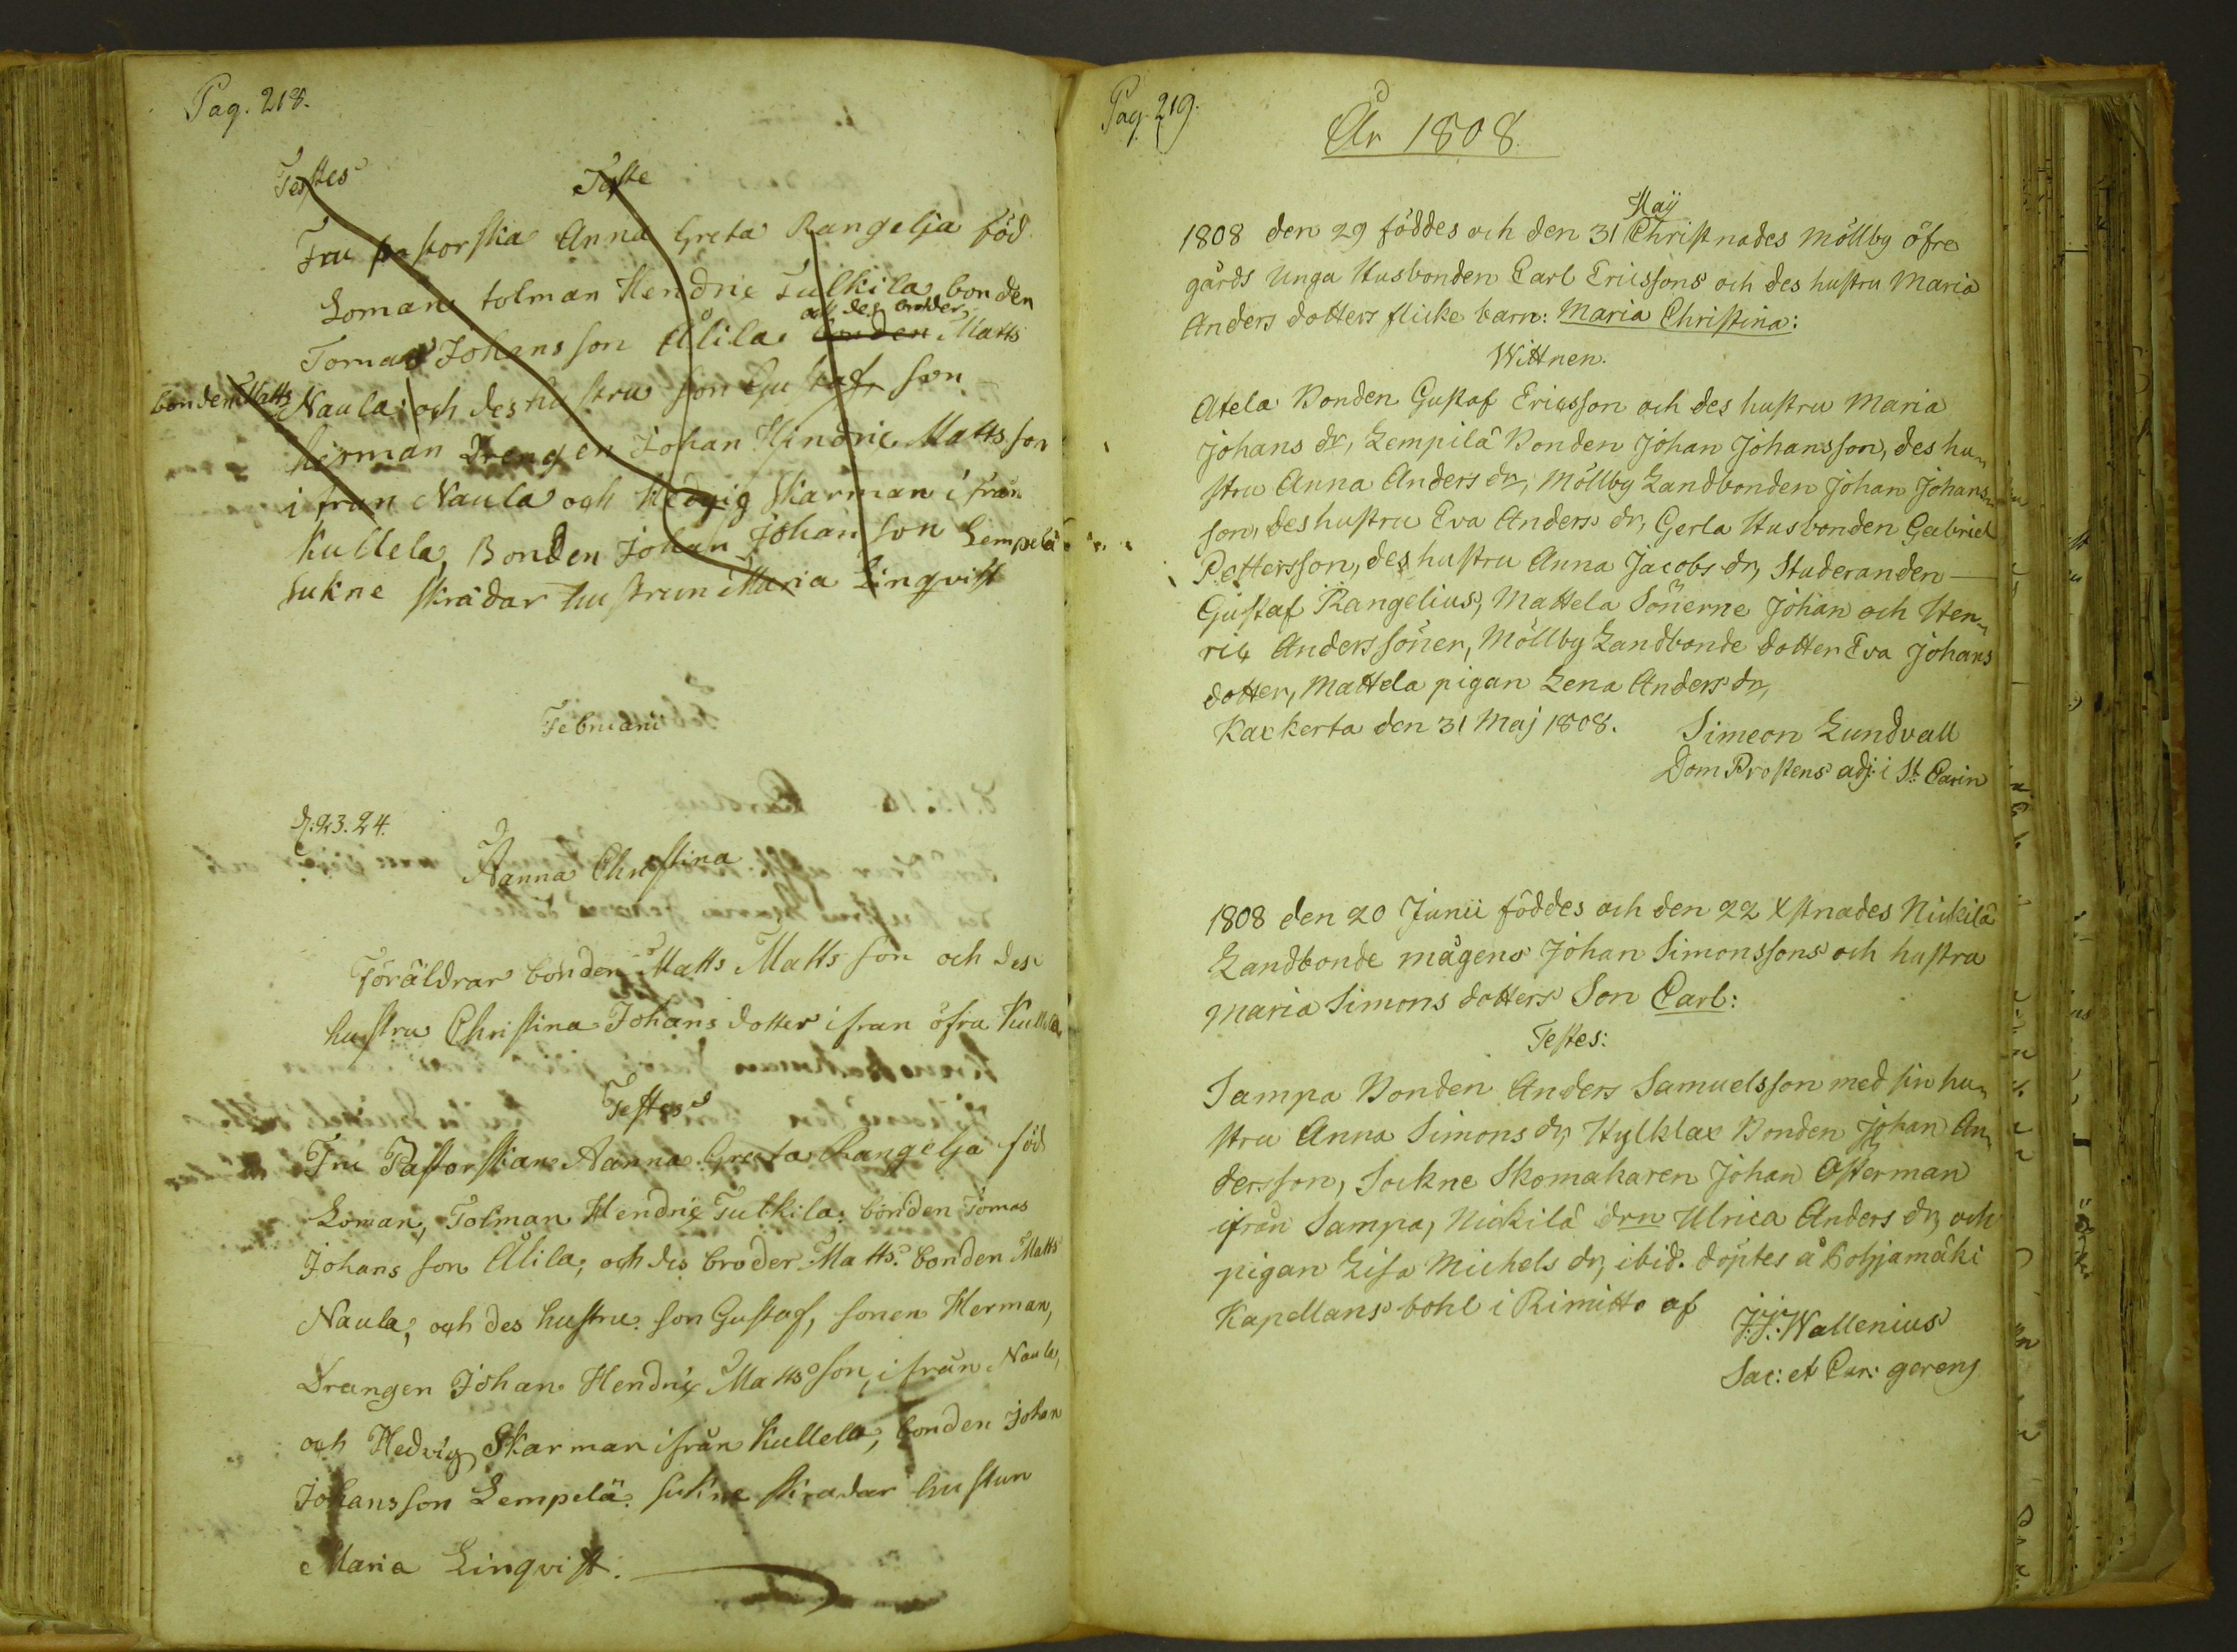 Pag. 218.
Testes Teste
Fru pastorska Anna Greta Rangelja föd
Loman tolman Hendric Tulkila, bonden
och des broder
Tomas Johansson Ålila bonden Matts
bonden Matts Naula och des hustru son Gustaf, son
herman Drengen Johan Hindric Matts son
ifrån Naula och Hedvig Skarman ifrån
Kullela, Bonden Johan Johanson Lempelä
sukne skrädar hustrun Maria Linqvist
Februarii
d: 23. 24.
Aanna Christina
Föräldrar bonden Matts Matts son och des
hustru Christina Johans dotter ifran öfra Kullela
Testes
Fru Pastorskan Aanna Greeta Rangelja föd
Loman, Tolman Hendric Tulkila, bonden Tomas
Johans son Ålila, och des broder Matts. bonden Matts
Naula, och des hustru. son Gustaf, sonen Herman,
Drangen Johan Hendric Matts son, ifrån Naula,
och Hedvig Skarman ifrån Kullela, bonden Johan
Johansson Lempelä. sukne skradar hustun
Maria Linqvist.
Pag. 219.
År 1808.
Maij
1808 den 29 föddes och den 31 Christnades Möllby öfre
gårds Unga Husbonden Carl Ericssons och des hustru Maria
Anders dotters flicke barn: Maria Christina:
Wittnen.
Atela Bonden Gustaf Ericsson och des hustru Maria
Johans dr, Lempilä Bonden Johan Johansson, des hu-
stru Anna Anders dr, Möllby Landbonden Johan Johans-
son, des hustru Eva Anders dr, Gerla Husbonden Gabriel
Pettersson, des hustru Anna Jacobs dr, Studeranden
Gustaf Rangelius, Mattela Sönerne Johan och Hen-
ric Anderssöner, Möllby Landbonde dotter Eva Johans
dotter, Mattela pigan Lena Anders dr,
Kackerta den 31 Maj 1808. Simeon Lundvall
Dom Prostens adj: i St Carin
1808 den 20 Junii föddes och den 22 Xstnades Nickilä
Landbonde mågens Johan Simonssons och hustra
Maria Simons dotters Son Carl:
Testes:
Sampa Bonden Anders Samuelsson med sin hu-
stru Anna Simons dr, Hylklax Bonden Johan An-
dersson, Sockne Skomakaren Johan Osterman
ifrån Sampa, Nickilä drn Ulrica Anders dr, och
pigan Lisa Michels dr, ibid. döptes å Pohjamäki
Kapellans bohl i Rimitto af J:J: Wallenius
Sac: et Cur: gerens